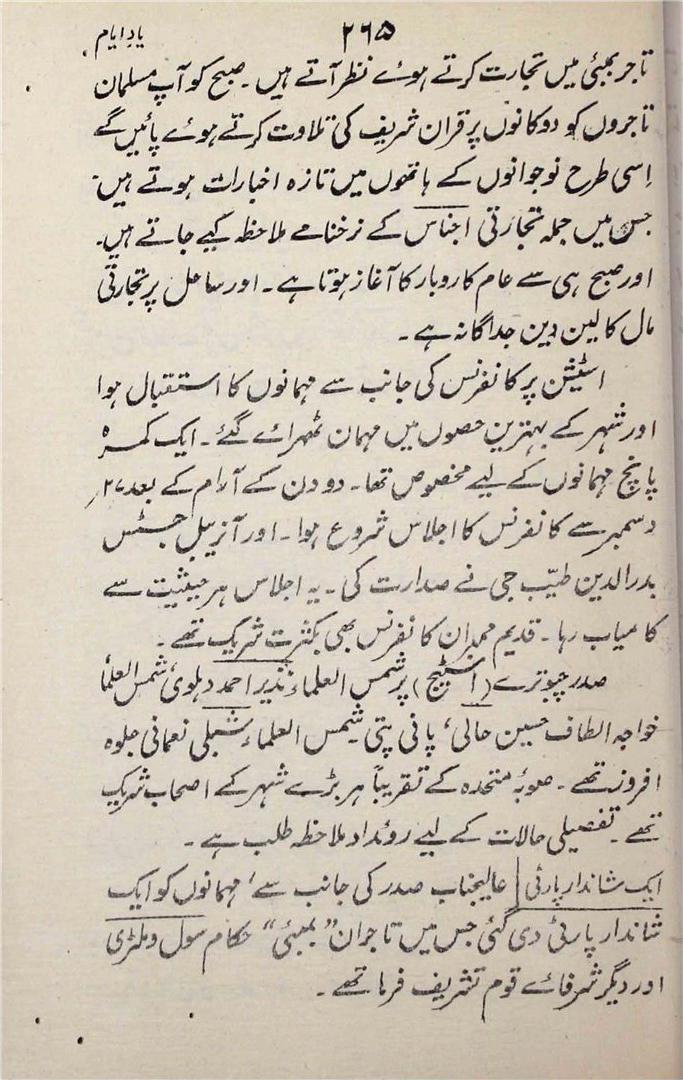 ۲۶۵
یادِ ایام
تاجر بمبئی میں تجارت کرتے ہوئے نظر آتے ہیں۔ صبح کو آپ مسلمان
تاجروں کو دوکانوں پر قران شریف کی تلاوت کرتے ہوئے پائیں گے
اِسی طرح نوجوانوں کے ہاتھوں میں تازہ اخبارات ہوتے ہیں۔
جس میں جملہ تجارتی اجناس کے نرخنامے ملاحظہ کیے جاتے ہیں۔
اور صبح ہی سے عام کاروبار کا آغاز ہوتا ہے۔ اور ساحل پر تجارتی
مال کا لین دین جداگانہ ہے۔
اسٹیشن پر کانفرنس کی جانب سے مہمانوں کا استقبال ہوا
اور شہر کے بہترین حصوں میں مہمان ٹھہرائے گئے۔ ایک کمرہ
پانچ مہمانوں کے لیے مخصوص تھا۔ دو دن کے آرام کے بعد ۲۷ر
دسمبر سے کانفرنس کا اجلاس شروع ہوا۔ اور آنریبل جسٹس
بدرالدین طیّب جی نے صدارت کی۔ یہ اجلاس ہر حیثیت سے
کامیاب رہا۔ قدیم ممبرانِ کانفرنس بھی بکثرت شریک تھے۔
صدر چبوترے (اسٹیج) پر شمس العلماء نذیر احمد دہلوی، شمس العلما
خواجہ الطاف حسین حالی، پانی پتی۔ شمس العلماء شبلی نعمانی جلوہ
افروز تھے۔ صوبۂ متحدہ کے تقریباً ہر بڑے شہر کے اصحاب شریک
تھے۔ تفصیلی حالات کے لیے روئداد ملاحظہ طلب ہے۔
ایک شاندار پارٹی | عالیجناب صدر کی جانب سے، مہمانوں کو ایک
شاندار پارٹی دی گئی جس میں تاجران ”بمبئی“ حکام سول و ملٹری
اور دیگر شرفائے قوم تشریف فرما تھے۔